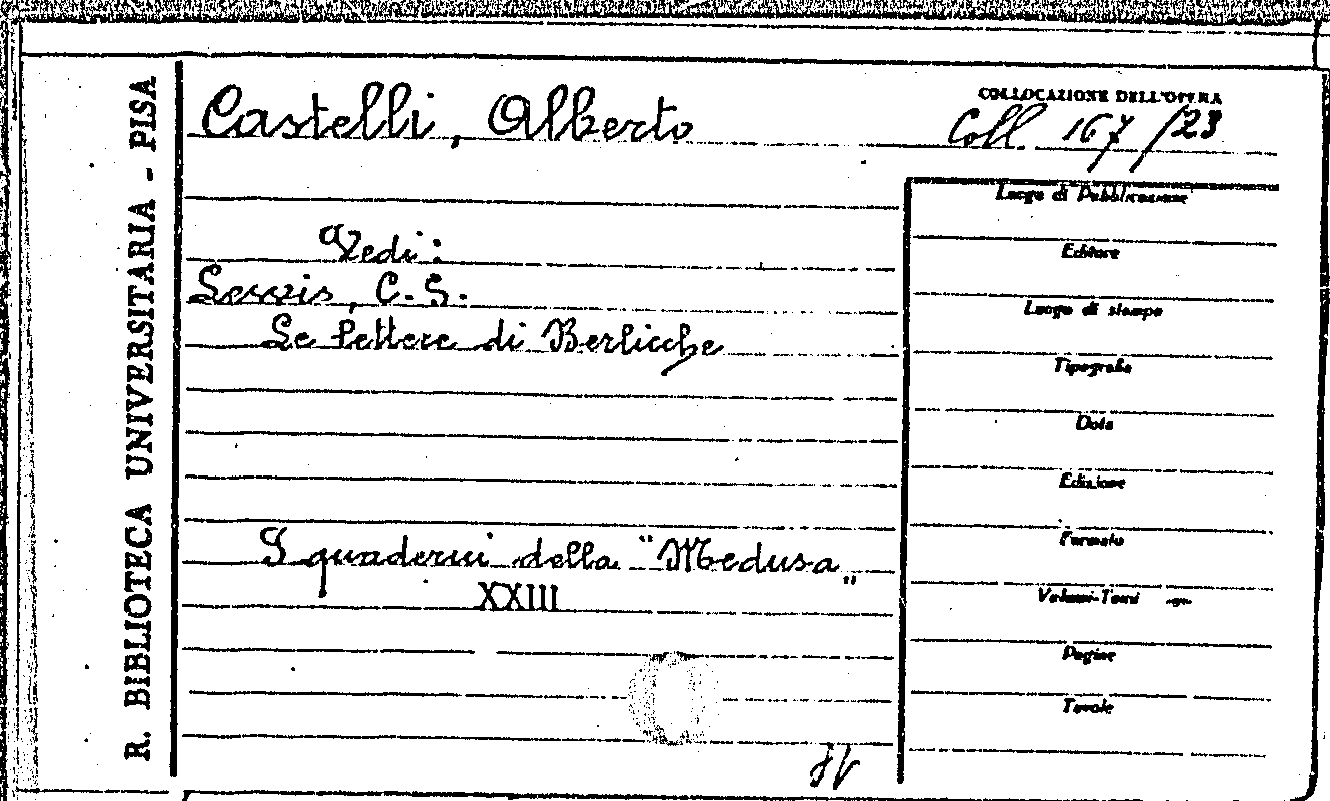 R. BIBLIOTECA UNIVERSITARIA - PISA
Castelli, Alberto
COLLOCAZIONE DELL'OPERA
Coll. 167/23
Vedi:
Lewis, C. S.
Le lettere di Berlicche
I quaderni della "Medusa"
XXIII
Luogo di Pubblicazione
Editore
Luogo di stampa
Tipografia
Data
Edizione
Formato
Volumi-Tomi
Pagine
Tavole